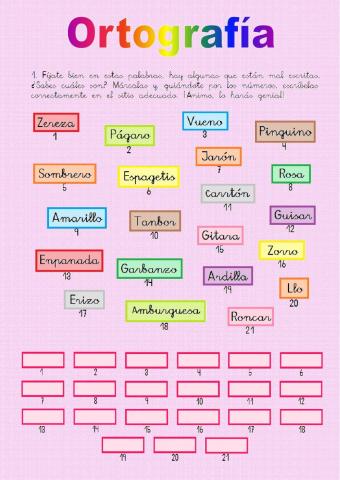 Ortografía
1. Fíjate bien en estas palabras, hay algunas que están mal escritas.
¿Sabes cuáles son? Márcalas y, guiándote por los números, escríbelas
correctamente en el sitio adecuado. ¡Ánimo, lo harás genial!
Zereza
1
Págaro
2
Vueno
3
Pinguino
4
Sombrero
5
Espagetis
6
Jarón
7
Rosa
8
Amarillo
9
Tanbor
10
Carritón
11
Guisar
12
Empanada
13
Garbanzo
14
Gitara
15
Zorro
16
Erizo
17
Amburguesa
18
Ardilla
19
Llo
20
Roncar
21
1 2 3 4 5 6
7 8 9 10 11 12
13 14 15 16 17 18
19 20 21